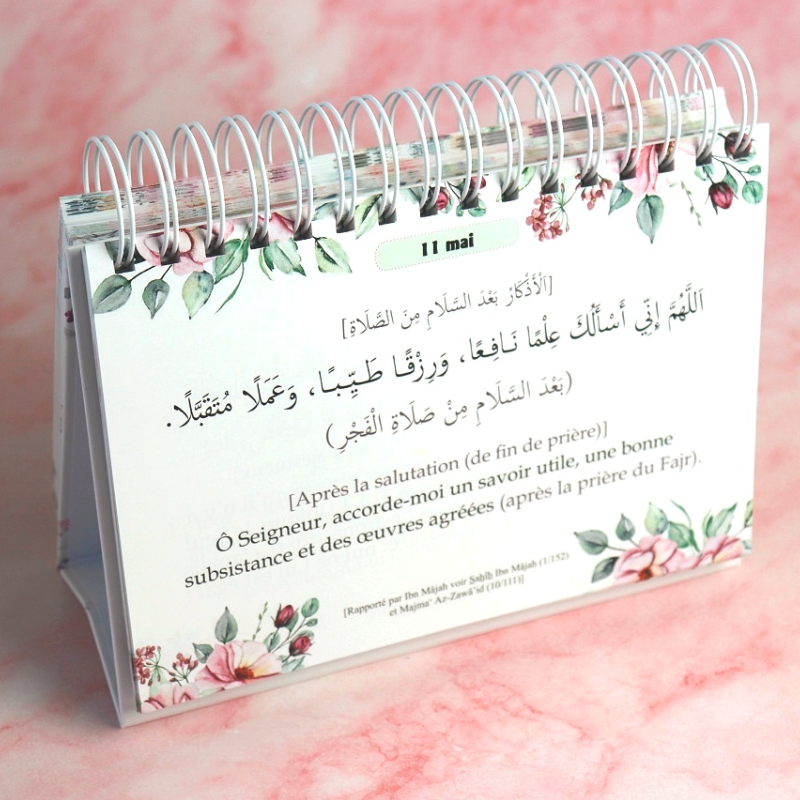 11 mai
[اَلْأَذْكَارُ بَعْدَ السَّلَامِ مِنَ الصَّلَاةِ]
اَللَّهُمَّ إِنِّي أَسْأَلُكَ عِلْمًا نَافِعًا، وَرِزْقًا طَيِّبًا، وَعَمَلًا مُتَقَبَّلًا.
(بَعْدَ السَّلَامِ مِنْ صَلَاةِ الْفَجْرِ)
[Après la salutation (de fin de prière)]
Ô Seigneur, accorde-moi un savoir utile, une bonne
subsistance et des œuvres agréées (après la prière du Fajr).
[Rapporté par Ibn Mâjah voir Sahîh Ibn Mâjah (1/152)
et Majma' Az-Zawâ'id (10/111)]